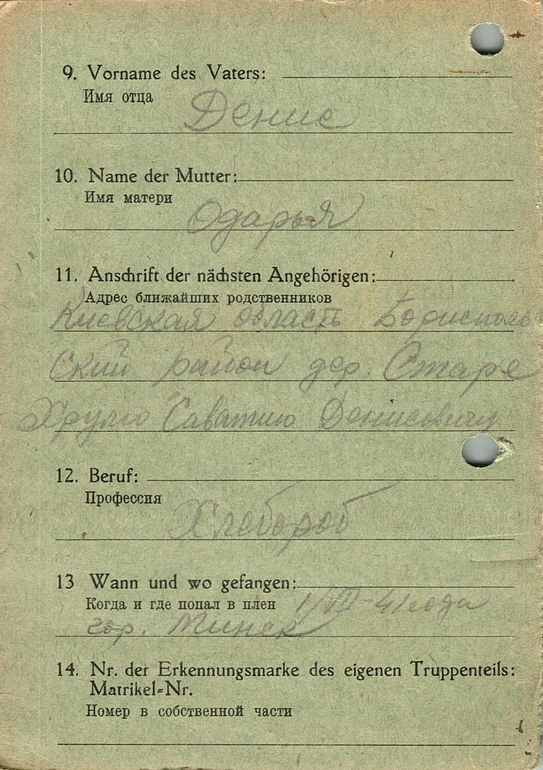 9. Vorname des Vaters:
Имя отца
Денис
10. Name der Mutter:
Имя матери
Одарья
11. Anschrift der nächsten Angehörigen:
Адрес ближайших родственников
Киевская область Борисполь
ский район дер. Старе
Хрулю Саватию Денисовичу
12. Beruf:
Профессия
Хлебороб
13 Wann und wo gefangen:
Когда и где попал в плен 1/VII-41 года
гор. Минск
14. Nr. der Erkennungsmarke des eigenen Truppenteils:
Matrikel-Nr.
Номер в собственной части